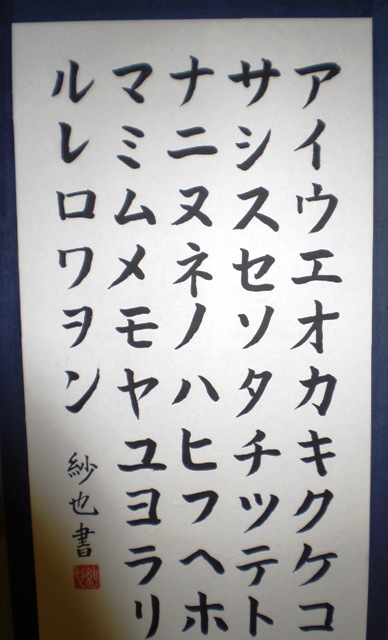 アイウエオカキクケコ
サシスセソタチツテト
ナニヌネノハヒフヘホ
マミムメモヤユヨラリ
ルレロワヲン
紗也書